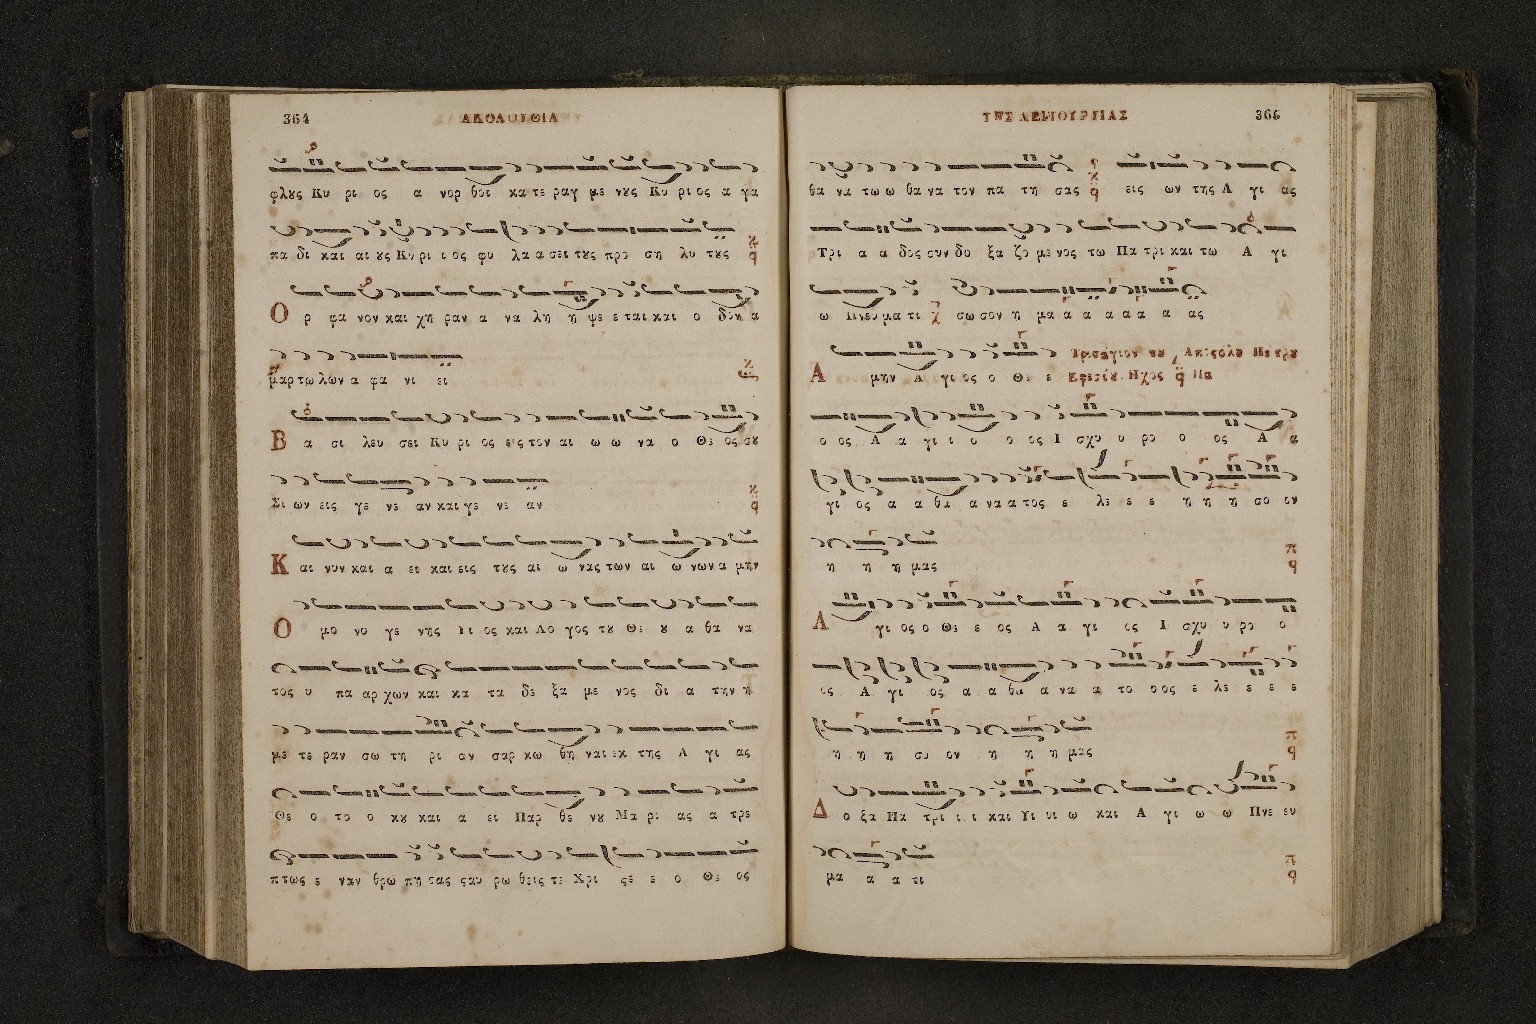 364
ΑΚΟΛΟΥΘΙΑ
φλȣς Κυ ρι ος α νορ θοι κα τε ραγ με νȣς Κυ ρι ος α γα
πα δι και αι ȣς Κυ ρι ι ος φυ λα α σει τȣς προ ση λυ τȣς
Ο ρ φα νον και χη ραν α να λη η ψε ε ται και ο δον α
μαρ τω λων α φα νι ει
Β α σι λευ σει Κυ ρι ος εις τον αι ω ω να ο Θε ος σȣ
Σι ων εις γε νε αν και γε νε αν
Κ αι νυν και α ει και εις τȣς αι ω νας των αι ω νων α μην
Ο μο νο γε νης Υι ος και Λο γος τȣ Θε ȣ α θα να
τος υ πα αρ χων και κα τα δε ξα με νος δι α την η
με τε ραν σω τη ρι αν σαρ κω θη ναι εκ της Α γι ας
Θε ο το ο κȣ και α ει Παρ θε νȣ Μα ρι ας α τρε
πτως ε ναν θρω πη σας ςαυ ρω θεις τε Χρι ςε ε ο Θε ος
ΤΗΣ ΛΕΙΤΟΥΡΓΙΑΣ
365
θα να τω ω θα να τον πα τη σας εις ων της Α γι ας
Τρι α α δος συν δο ξα ζο με νος τω Πα τρι και τω Α γι
ω Πνευ μα τι σω σον η μα α α α α α ας
Α μην Α γι ος ο Θε ε Τρισαγιον του Αποςολȣ Πετρȣ
Εφεσίȣ Ηχος Πα
ο ος Α α γι ι ο ο ος Ι σχυ υ ρο ο ος Α α
γι ος α α θα α να α τος ε λε ε ε η η η σο ον
η η η μας
Α γι ος ο Θε ε ος Α α γι ος Ι σχυ υ ρο ο
ος Α γι ος α α θα α να α το ο ος ε λε ε ε ε
η η η σο ον η η η μας
Δ ο ξα Πα τρι ι ι και Υι υι ω και Α γι ω ω Πνε ευ
μα α α τι